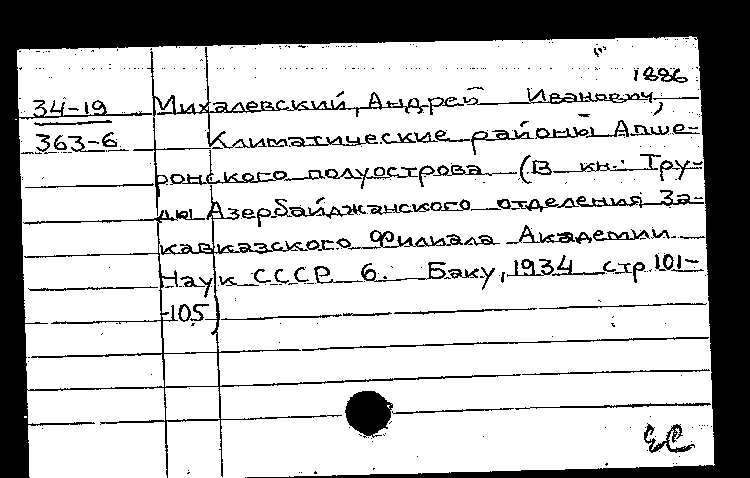 1886
34-19 Михалевский, Андрей Иванович,
363-6 Климатические районы Апше-
ронского полуострова (В кн.: Тру-
ды Азербайджанского отделения За-
кавказского Филиала Академии
Наук СССР 6. Баку, 1934 стр 101-
-105)
ЕС